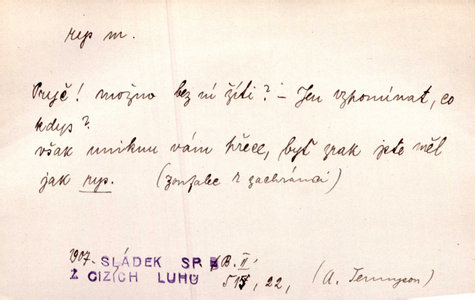 rys m.
Pryč! možno bez ní žíti? – Jen vzpomínat, co
kdys?
však uniknu vám hřece, byť zrak jste měl
jak rys. (zoufalec k zachránci)
1907. SLÁDEK SR B. II.
Z CIZÍCH LUHŮ 515, 22, (A. Tennyson)